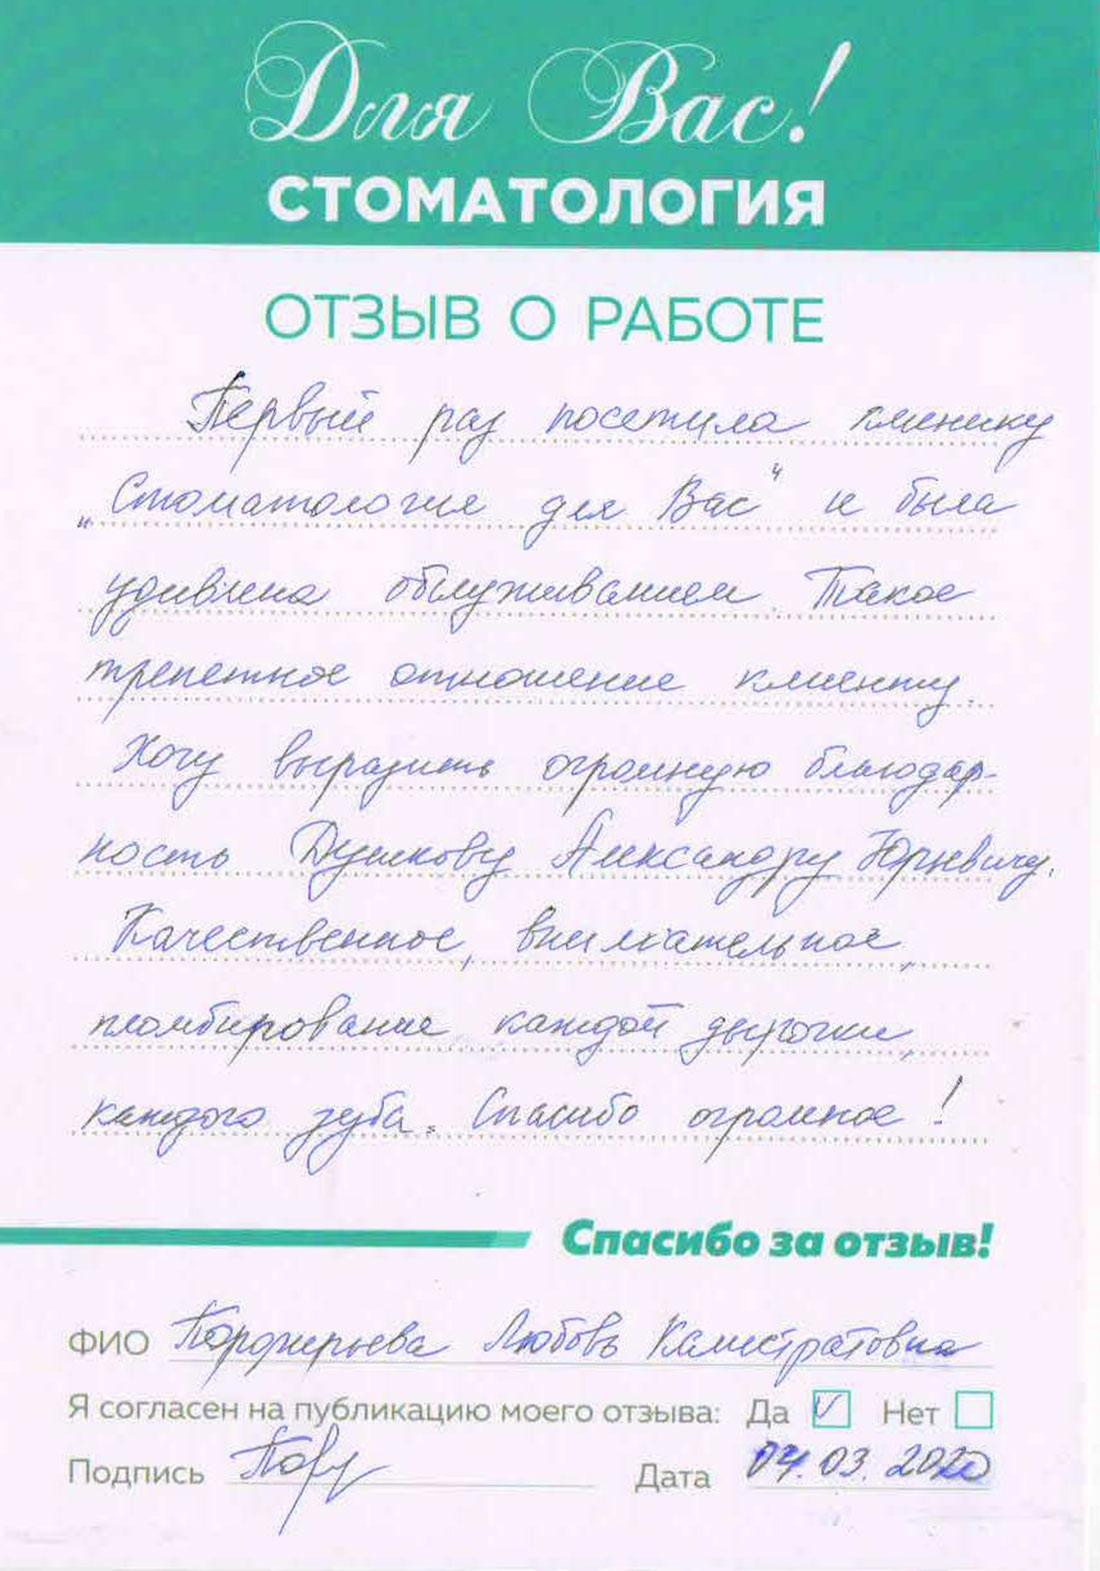 Для Вас!
СТОМАТОЛОГИЯ
ОТЗЫВ О РАБОТЕ
Первый раз посетила клинику
„Стоматология для Вас“ и была
удивлена обслуживанием. Такое
трепетное отношение клиенту.
Хочу выразить огромную благодар-
ность Душкову Александру Юрьевичу.
Качественное, внимательное,
пломбирование каждой дырочки,
каждого зуба. Спасибо огромное!
Спасибо за отзыв!
ФИО Порфирьева Любовь Калистратовна
Я согласен на публикацию моего отзыва: Да Нет
Подпись Дата 04.03.2020